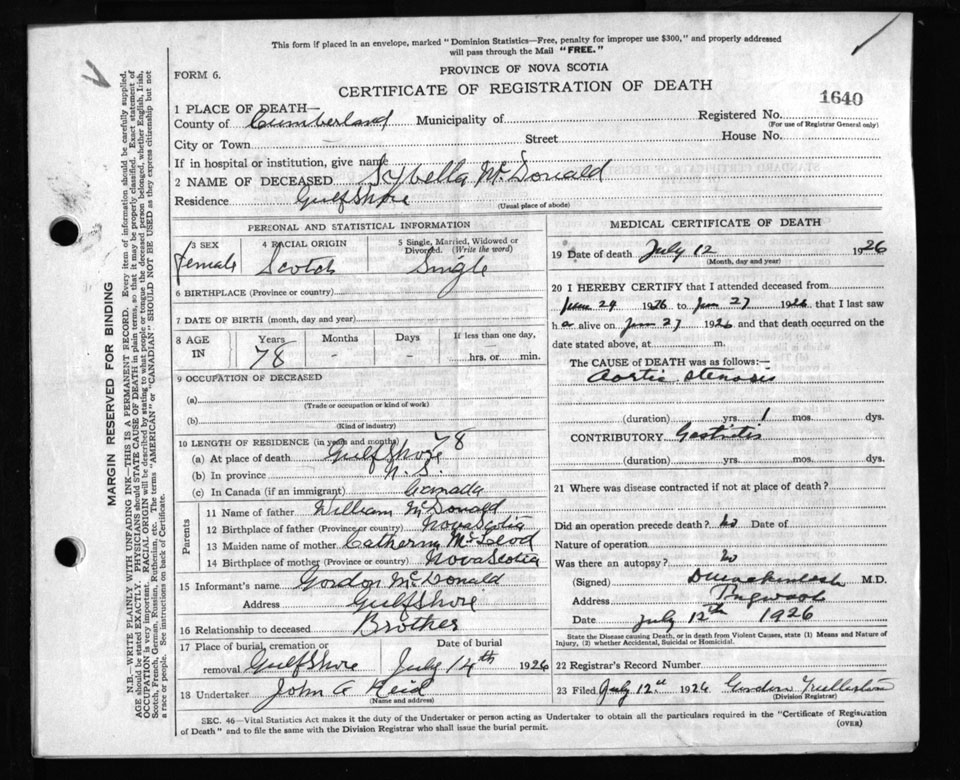 This form if placed in an envelope, marked "Dominion Statistics—Free, penalty for improper use $300," and properly addressed
will pass through the Mail "FREE."
PROVINCE OF NOVA SCOTIA
FORM 6.
CERTIFICATE OF REGISTRATION OF DEATH
1640
1 PLACE OF DEATH—
County of Cumberland Municipality of Registered No.
(For use of Registrar General only)
City or Town Street House No.
If in hospital or institution, give name
2 NAME OF DECEASED Sybella McDonald
Residence Gulf Shore
(Usual place of abode)
PERSONAL AND STATISTICAL INFORMATION
3 SEX 4 RACIAL ORIGIN 5 Single, Married, Widowed or
Divorced. (Write the word)
female Scotch Single
6 BIRTHPLACE (Province or country)
7 DATE OF BIRTH (month, day and year)
8 AGE Years Months Days If less than one day,
IN 78 - - hrs. or min.
9 OCCUPATION OF DECEASED
(a)
(Trade or occupation or kind of work)
(b)
(Kind of industry)
10 LENGTH OF RESIDENCE (in years and months)
(a) At place of death Gulf Shore 78
(b) In province N. S.
(c) In Canada (if an immigrant) Canada
Parents
11 Name of father William McDonald
12 Birthplace of father (Province or country) Nova Scotia
13 Maiden name of mother Catherine McLeod
14 Birthplace of mother (Province or country) Nova Scotia
15 Informant's name Gordon McDonald
Address Gulf Shore
16 Relationship to deceased Brother
17 Place of burial, cremation or Date of burial
removal Gulf Shore July 14th 1926
18 Undertaker John A Reid
(Name and address)
MEDICAL CERTIFICATE OF DEATH
19 Date of death July 12 1926
(Month, day and year)
20 I HEREBY CERTIFY that I attended deceased from
June 24 1926 to Jun 27 1926 that I last saw
her alive on Jun 27 1926 and that death occurred on the
date stated above, at m.
The CAUSE OF DEATH was as follows:—
Aortic stenosis
(duration) yrs. 1 mos. dys.
CONTRIBUTORY Gastritis
(duration) yrs. mos. dys.
21 Where was disease contracted if not at place of death?
Did an operation precede death? no Date of
Nature of operation
Was there an autopsy? no
(Signed) M.D.
Address Pugwash
Date July 12th 1926
State the Disease causing Death, or in death from Violent Causes, state (1) Means and Nature of
Injury, (2) whether Accidental, Suicidal or Homicidal.
22 Registrar's Record Number
23 Filed July 12th 1926 Gordon
(Division Registrar)
SEC. 46—Vital Statistics Act makes it the duty of the Undertaker or person acting as Undertaker to obtain all the particulars required in the "Certificate of Registration
of Death" and to file the same with the Division Registrar who shall issue the burial permit.
(OVER)
MARGIN RESERVED FOR BINDING
N.B.—WRITE PLAINLY WITH UNFADING INK—THIS IS A PERMANENT RECORD. Every item of information should be carefully supplied.
AGE should be stated EXACTLY. PHYSICIANS should STATE CAUSE OF DEATH in plain terms, so that it may be properly classified. Exact statement of
OCCUPATION is very important. RACIAL ORIGIN will be described by stating to what people or tongue the deceased person belonged, whether English, Irish,
Scotch, French, German, Russian, Ruthenian, etc. The terms "AMERICAN" or "CANADIAN" SHOULD NOT BE USED as they express citizenship but not
a race or people. See instructions on back of Certificate.